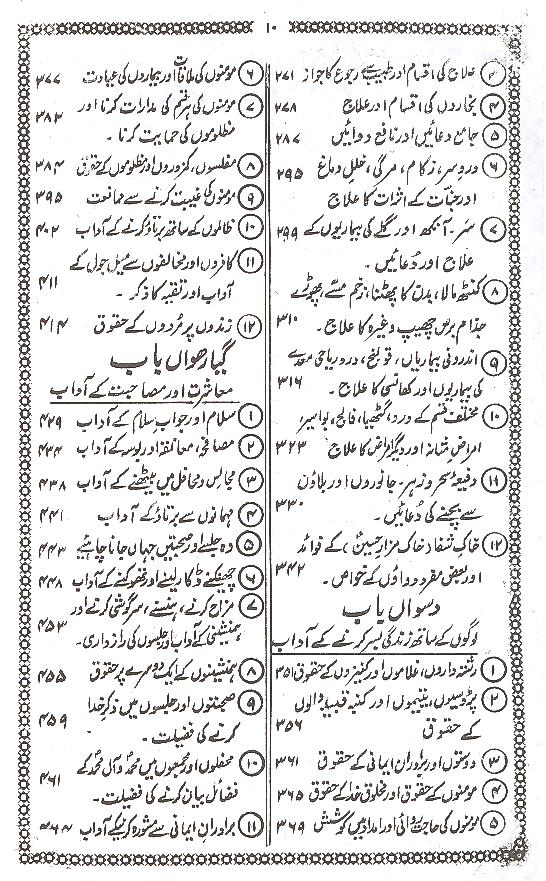 ۱۰
۳ علاج کی اقسام اور طبیب سے رجوع کا جواز ۲۷۱
۴ بخاروں کی اقسام اور علاج ۲۷۸
۵ جامع دعائیں اور نافع دوائیں ۲۸۷
۶ دردِ سر، زکام، مرگی، خللِ دماغ
اور جنّات کے اثرات کا علاج ۲۹۵
۷ سَر۔ آنکھ اور گلے کی بیماریوں کے
علاج اور دُعائیں۔ ۲۹۹
۸ کنٹھ مالا، بدن کا پھٹنا، زخم مسّے، پھوڑے
جذام برص چھیپ وغیرہ کا علاج۔ ۳۱۰
۹ اندرونی بیماریاں، قولنج، درد ریاحی معدے
کی بیماریوں اور کھانسی کا علاج۔ ۳۱۶
۱۰ مختلف قسم کے درد، گٹھیا، فالج، بواسیر،
امراضِ مثانہ اور دیگر امراض کا علاج ۳۲۳
۱۱ دفیعۂ سحر و زہر۔ جانوروں اور بلاؤں
سے بچنے کی دُعائیں۔ ۳۳۰
۱۲ خاکِ شفا (خاک مزارِ حسینؑ) کے فوائد
اور بعض مفرد دواؤں کے خواص۔ ۳۴۲
دسواں باب
لوگوں کے ساتھ زندگی بسر کرنے کے آداب
۱ رشتہ داروں، غلاموں اور کنیزوں کے حقوق ۳۵۱
۲ پڑوسیوں، یتیموں اور کنبہ قبیلہ والوں
کے حقوق ۳۵۶
۳ دوستوں اور برادرانِ ایمانی کے حقوق ۳۶۱
۴ مومنوں کے حقوق اور مخلوقِ خدا کے حقوق ۳۶۵
۵ مومنوں کی حاجت روائی اور امداد میں کوشش ۳۶۹
۶ مومنوں کی ملاقات اور بیماروں کی عیادت ۳۷۷
۷ مومنوں کی ہر قسم کی مدارات کرنا اور
مظلوموں کی حمایت کرنا۔ ۳۸۲
۸ مفلسوں، کمزوروں اور مظلوموں کے حقوق ۳۸۴
۹ مومنوں کی غیبت کرنے سے ممانعت ۳۹۵
۱۰ ظالموں کے ساتھ برتاؤ کرنے کے آداب ۴۰۲
۱۱ کافروں اور مخالفوں سے میل جول کے
آداب اور تقیہ کا ذکر۔ ۴۱۱
۱۲ زندوں پر مُردوں کے حقوق ۴۱۴
گیارھواں باب
معاشرت اور مصاحبت کے آداب
۱ سلام اور جواب سلام کے آداب ۴۲۹
۲ مصافحہ، معانقہ اور بوسہ کے آداب ۴۳۴
۳ مجالس و محافل میں بیٹھنے کے آداب ۴۳۸
۴ مہمانوں سے برتاؤ کے آداب ۴۴۱
۵ وہ جلسے اور صحبتیں جہاں جانا چاہیئے ۴۴۳
۶ چھینکنے ڈکار لینے اور تھوکنے کے آداب ۴۴۸
۷ مزاح کرنے، ہنسنے، سرگوشی کرنے اور
ہمنشینی کے آداب اور جلسوں کی رازداری۔ ۴۵۳
۸ ہمنشینوں کے ایک دوسرے پر حقوق ۴۵۵
۹ صحبتوں اور جلسوں میں ذکرِ خدا
کرنے کی فضیلت۔ ۴۵۹
۱۰ محفلوں اور مجمعوں میں محمدؐ و آلِ محمدؐ کے
فضائل بیان کرنے کی فضیلت۔ ۴۶۱
۱۱ برادرانِ ایمانی سے مشورہ کرنیکے آداب ۴۶۴